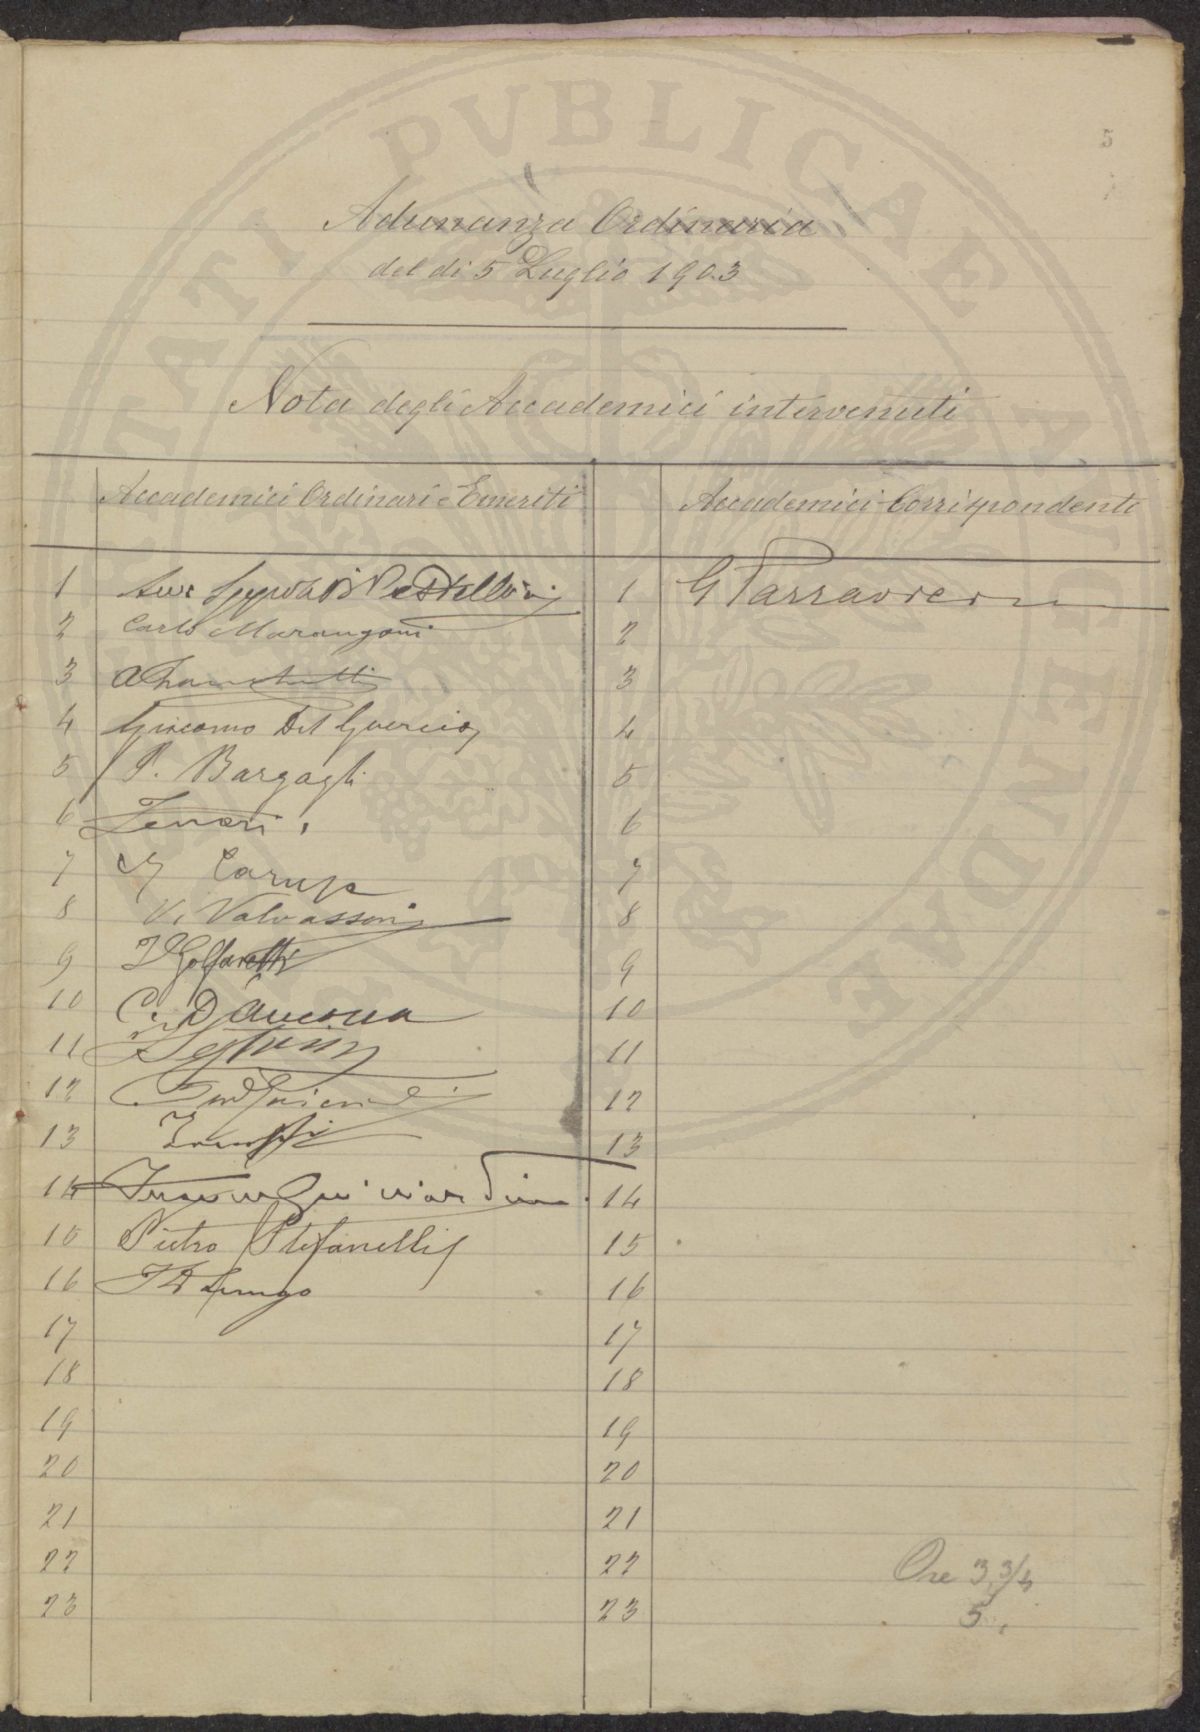 5
Adunanza Ordinaria
del dì 5 Luglio 1903
Nota degli Accademici intervenuti
Accademici Ordinari e Emeriti
Accademici Corrispondenti
1 Pestellini 1 G Parravicini
2 Carlo Marangoni 2
3 3
4 Giacomo Del Guercio 4
5 P. Bargagli 5
6 6
7 Caruso 7
8 V. Valvassori 8
9 Golfarelli 9
10 C. D'Ancona 10
11 11
12 12
13 13
14 Guicciardini 14
15 Pietro Stefanelli 15
16 16
17 17
18 18
19 19
20 20
21 21
22 22
23 23
Ore 3 3/4
5.
PVBLICAE